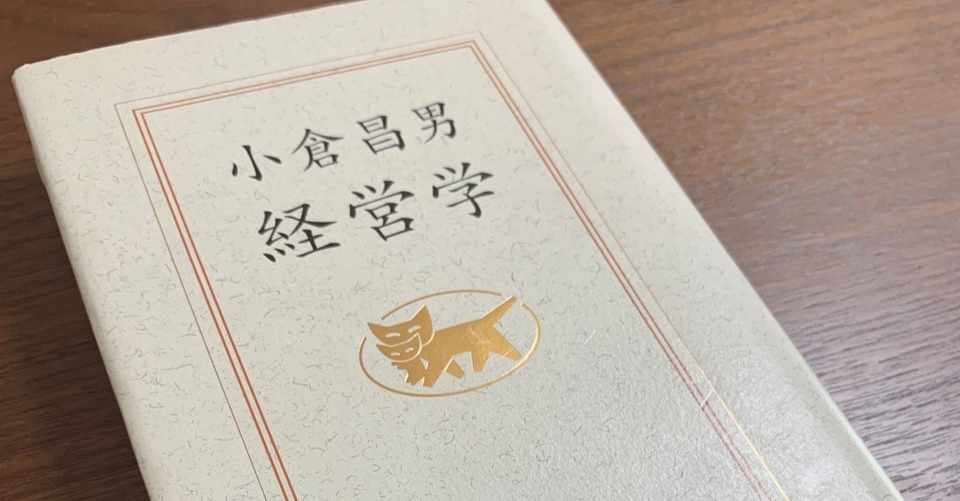 小倉昌男
経営学